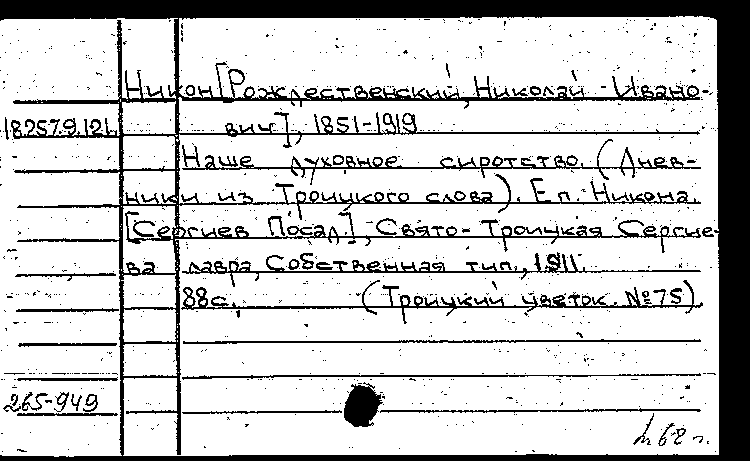 Никон [Рождественский, Николай Ивано-
18.257.9.121. вич], 1851-1919
Наше духовное сиротство. (Днев-
ники из Троицкого слова). Еп. Никона.
[Сергиев Посад], Свято-Троицкая Сергие-
ва лавра, Собственная тип., 1911.
88с. (Троицкий цветок. №75).
265-949
62 г.